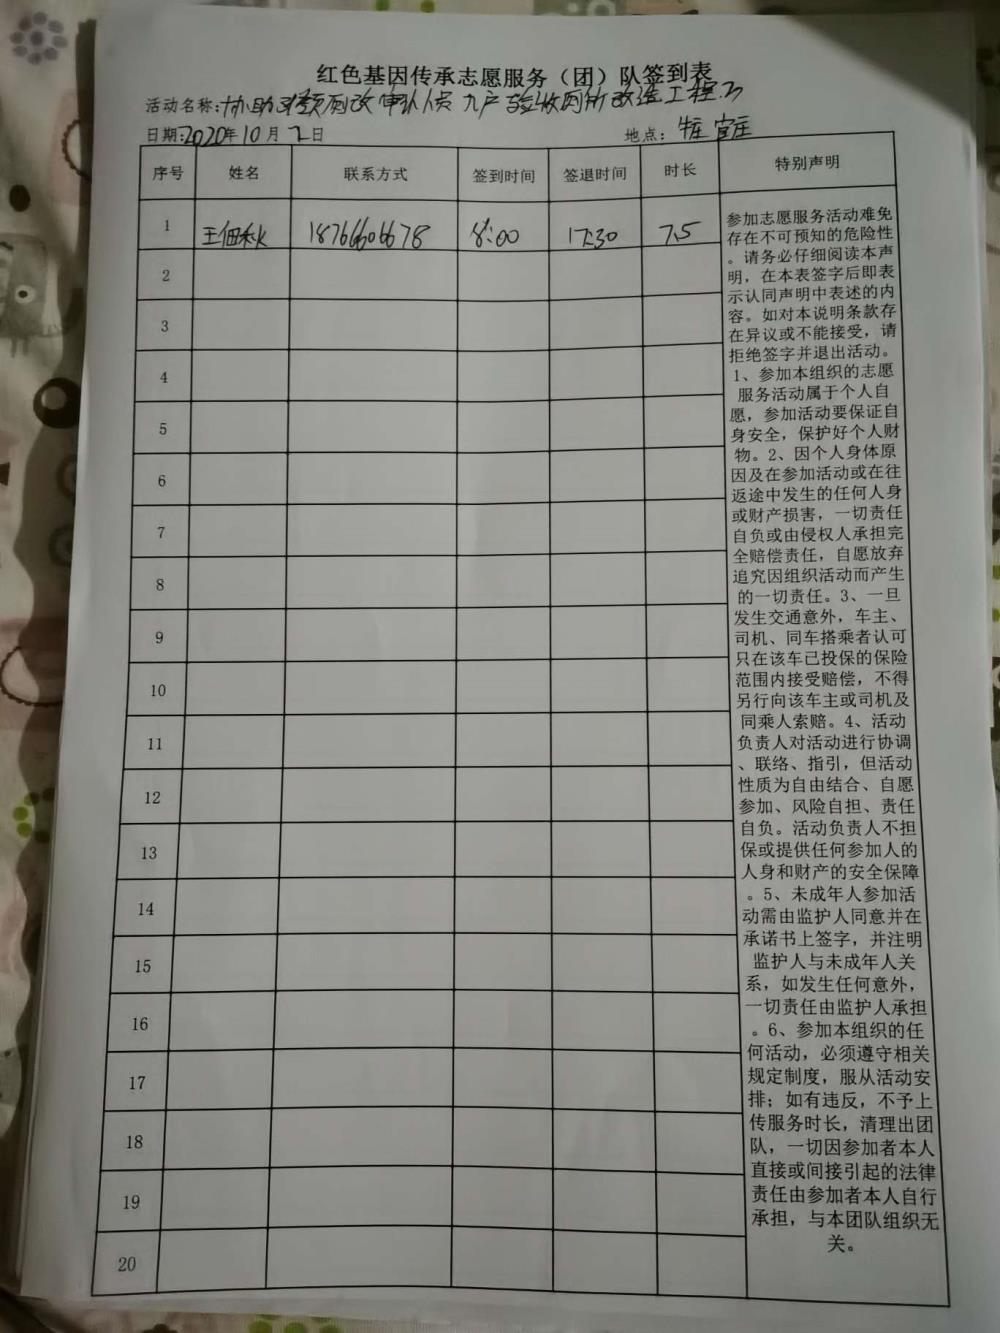 红色基因传承志愿服务（团）队签到表
活动名称:协助 厕改审计人员 入户验收厕所改造工程
日期:2020年10月2日 地点:
序号 姓名 联系方式 签到时间 签退时间 时长 特别声明
1 王佃秋 18766606678 8:00 17:30 7.5
2
3
4
5
6
7
8
9
10
11
12
13
14
15
16
17
18
19
20
参加志愿服务活动难免
存在不可预知的危险性
。请务必仔细阅读本声
明，在本表签字后即表
示认同声明中表述的内
容。如对本说明条款存
在异议或不能接受，请
拒绝签字并退出活动。
1、参加本组织的志愿
服务活动属于个人自
愿，参加活动要保证自
身安全，保护好个人财
物。2、因个人身体原
因及在参加活动或在往
返途中发生的任何人身
或财产损害，一切责任
自负或由侵权人承担完
全赔偿责任，自愿放弃
追究因组织活动而产生
的一切责任。3、一旦
发生交通意外，车主、
司机、同车搭乘者认可
只在该车已投保的保险
范围内接受赔偿，不得
另行向该车主或司机及
同乘人索赔。4、活动
负责人对活动进行协调
、联络、指引，但活动
性质为自由结合、自愿
参加、风险自担、责任
自负。活动负责人不担
保或提供任何参加人的
人身和财产的安全保障
。5、未成年人参加活
动需由监护人同意并在
承诺书上签字，并注明
监护人与未成年人关
系，如发生任何意外，
一切责任由监护人承担
。6、参加本组织的任
何活动，必须遵守相关
规定制度，服从活动安
排；如有违反，不予上
传服务时长，清理出团
队，一切因参加者本人
直接或间接引起的法律
责任由参加者本人自行
承担，与本团队组织无
关。